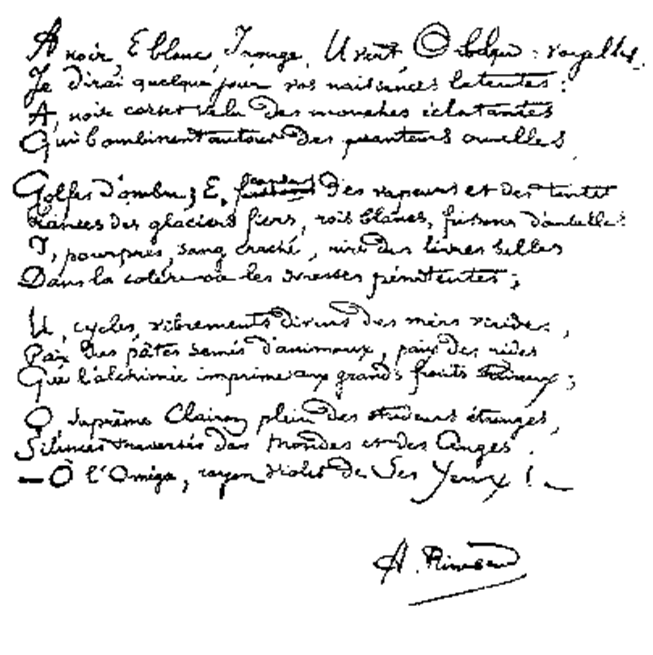 A noir, E blanc, I rouge, U vert, O bleu : voyelles,
Je dirai quelque jour vos naissances latentes :
A, noir corset velu des mouches éclatantes
Qui bombinent autour des puanteurs cruelles,
Golfes d'ombre ; E, candeurs des vapeurs et des tentes,
Lances des glaciers fiers, rois blancs, frissons d'ombelles ;
I, pourpres, sang craché, rire des lèvres belles
Dans la colère ou les ivresses pénitentes ;
U, cycles, vibrements divins des mers virides,
Paix des pâtis semés d'animaux, paix des rides
Que l'alchimie imprime aux grands fronts studieux ;
O, suprême Clairon plein des strideurs étranges,
Silences traversés des Mondes et des Anges :
— O l'Oméga, rayon violet de Ses Yeux ! —
A. Rimbaud